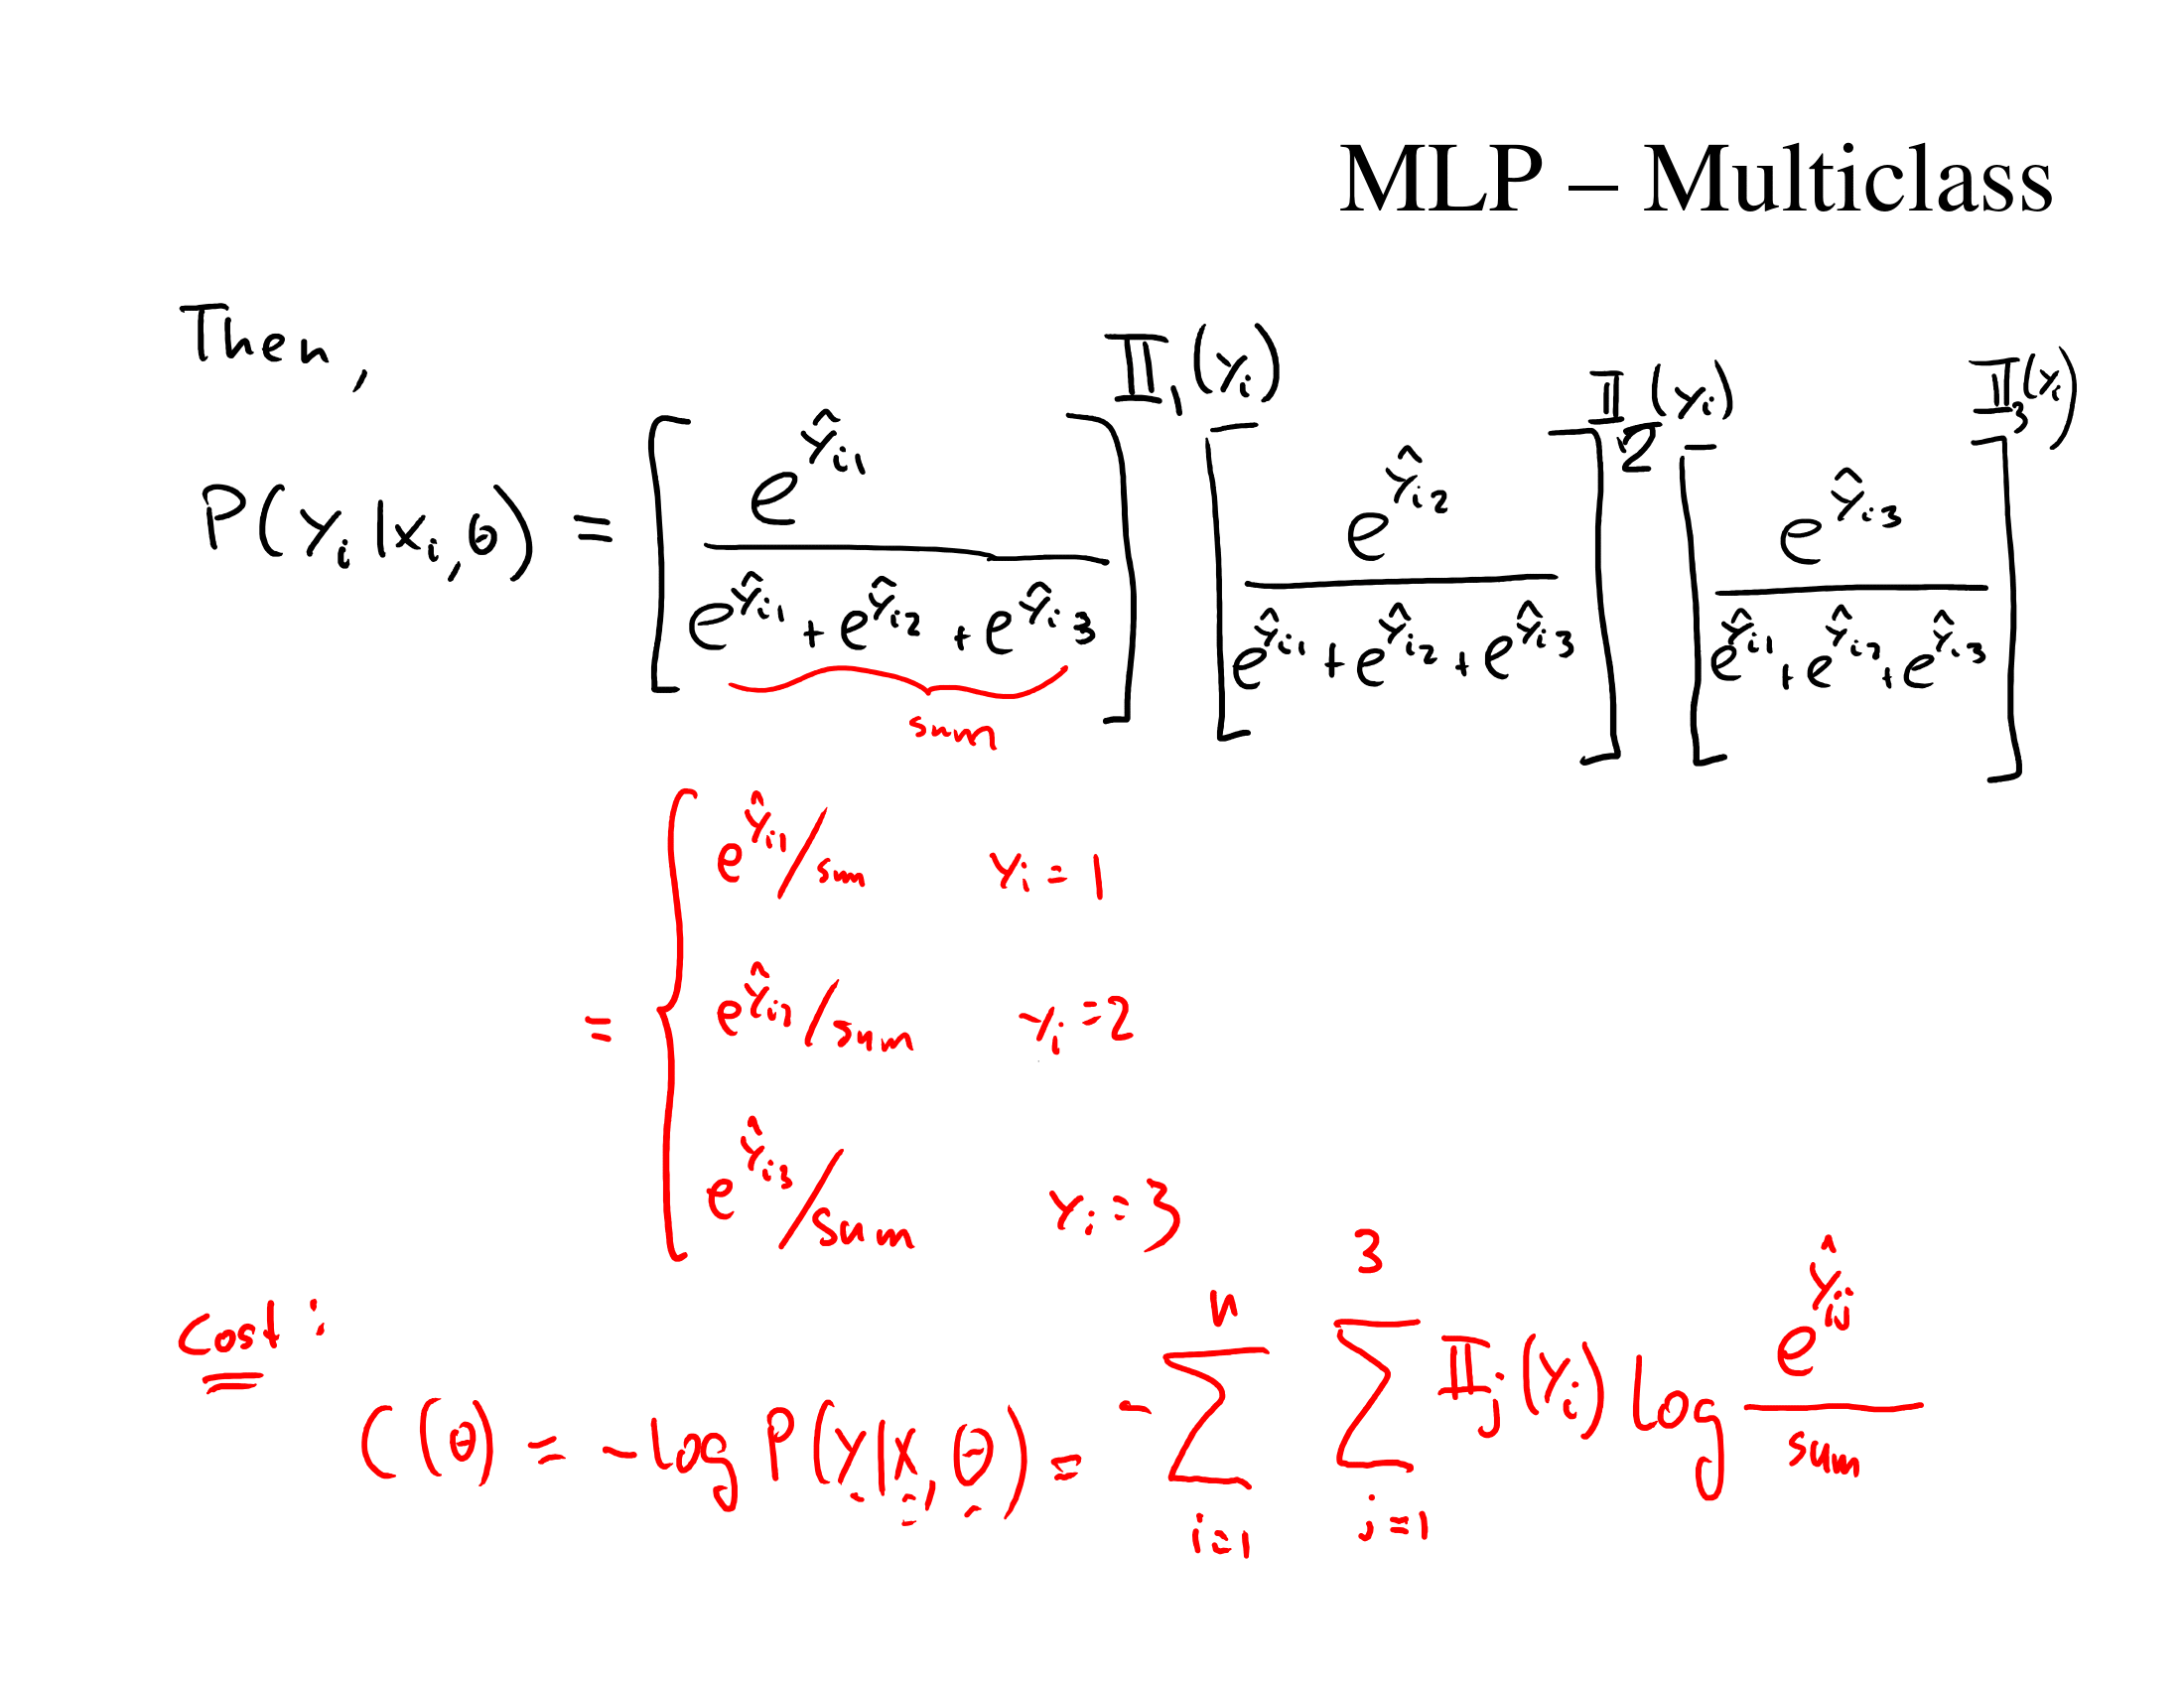 MLP – Multiclass
Then,
P(Y_i | X_i, θ) = [ e^{Ŷ_{i1}} / (e^{Ŷ_{i1}} + e^{Ŷ_{i2}} + e^{Ŷ_{i3}}) ]^{𝕀_1(Y_i)} [ e^{Ŷ_{i2}} / (e^{Ŷ_{i1}} + e^{Ŷ_{i2}} + e^{Ŷ_{i3}}) ]^{𝕀_2(Y_i)} [ e^{Ŷ_{i3}} / (e^{Ŷ_{i1}} + e^{Ŷ_{i2}} + e^{Ŷ_{i3}}) ]^{𝕀_3(Y_i)}
sum
= { e^{Ŷ_{i1}} / sum Y_i = 1
e^{Ŷ_{i2}} / sum Y_i = 2
e^{Ŷ_{i3}} / sum Y_i = 3
Cost:
C(θ) = - log P(Y | X, θ) = - ∑_{i=1}^{n} ∑_{j=1}^{3} 𝕀_j(Y_i) log e^{Ŷ_{ij}} / sum